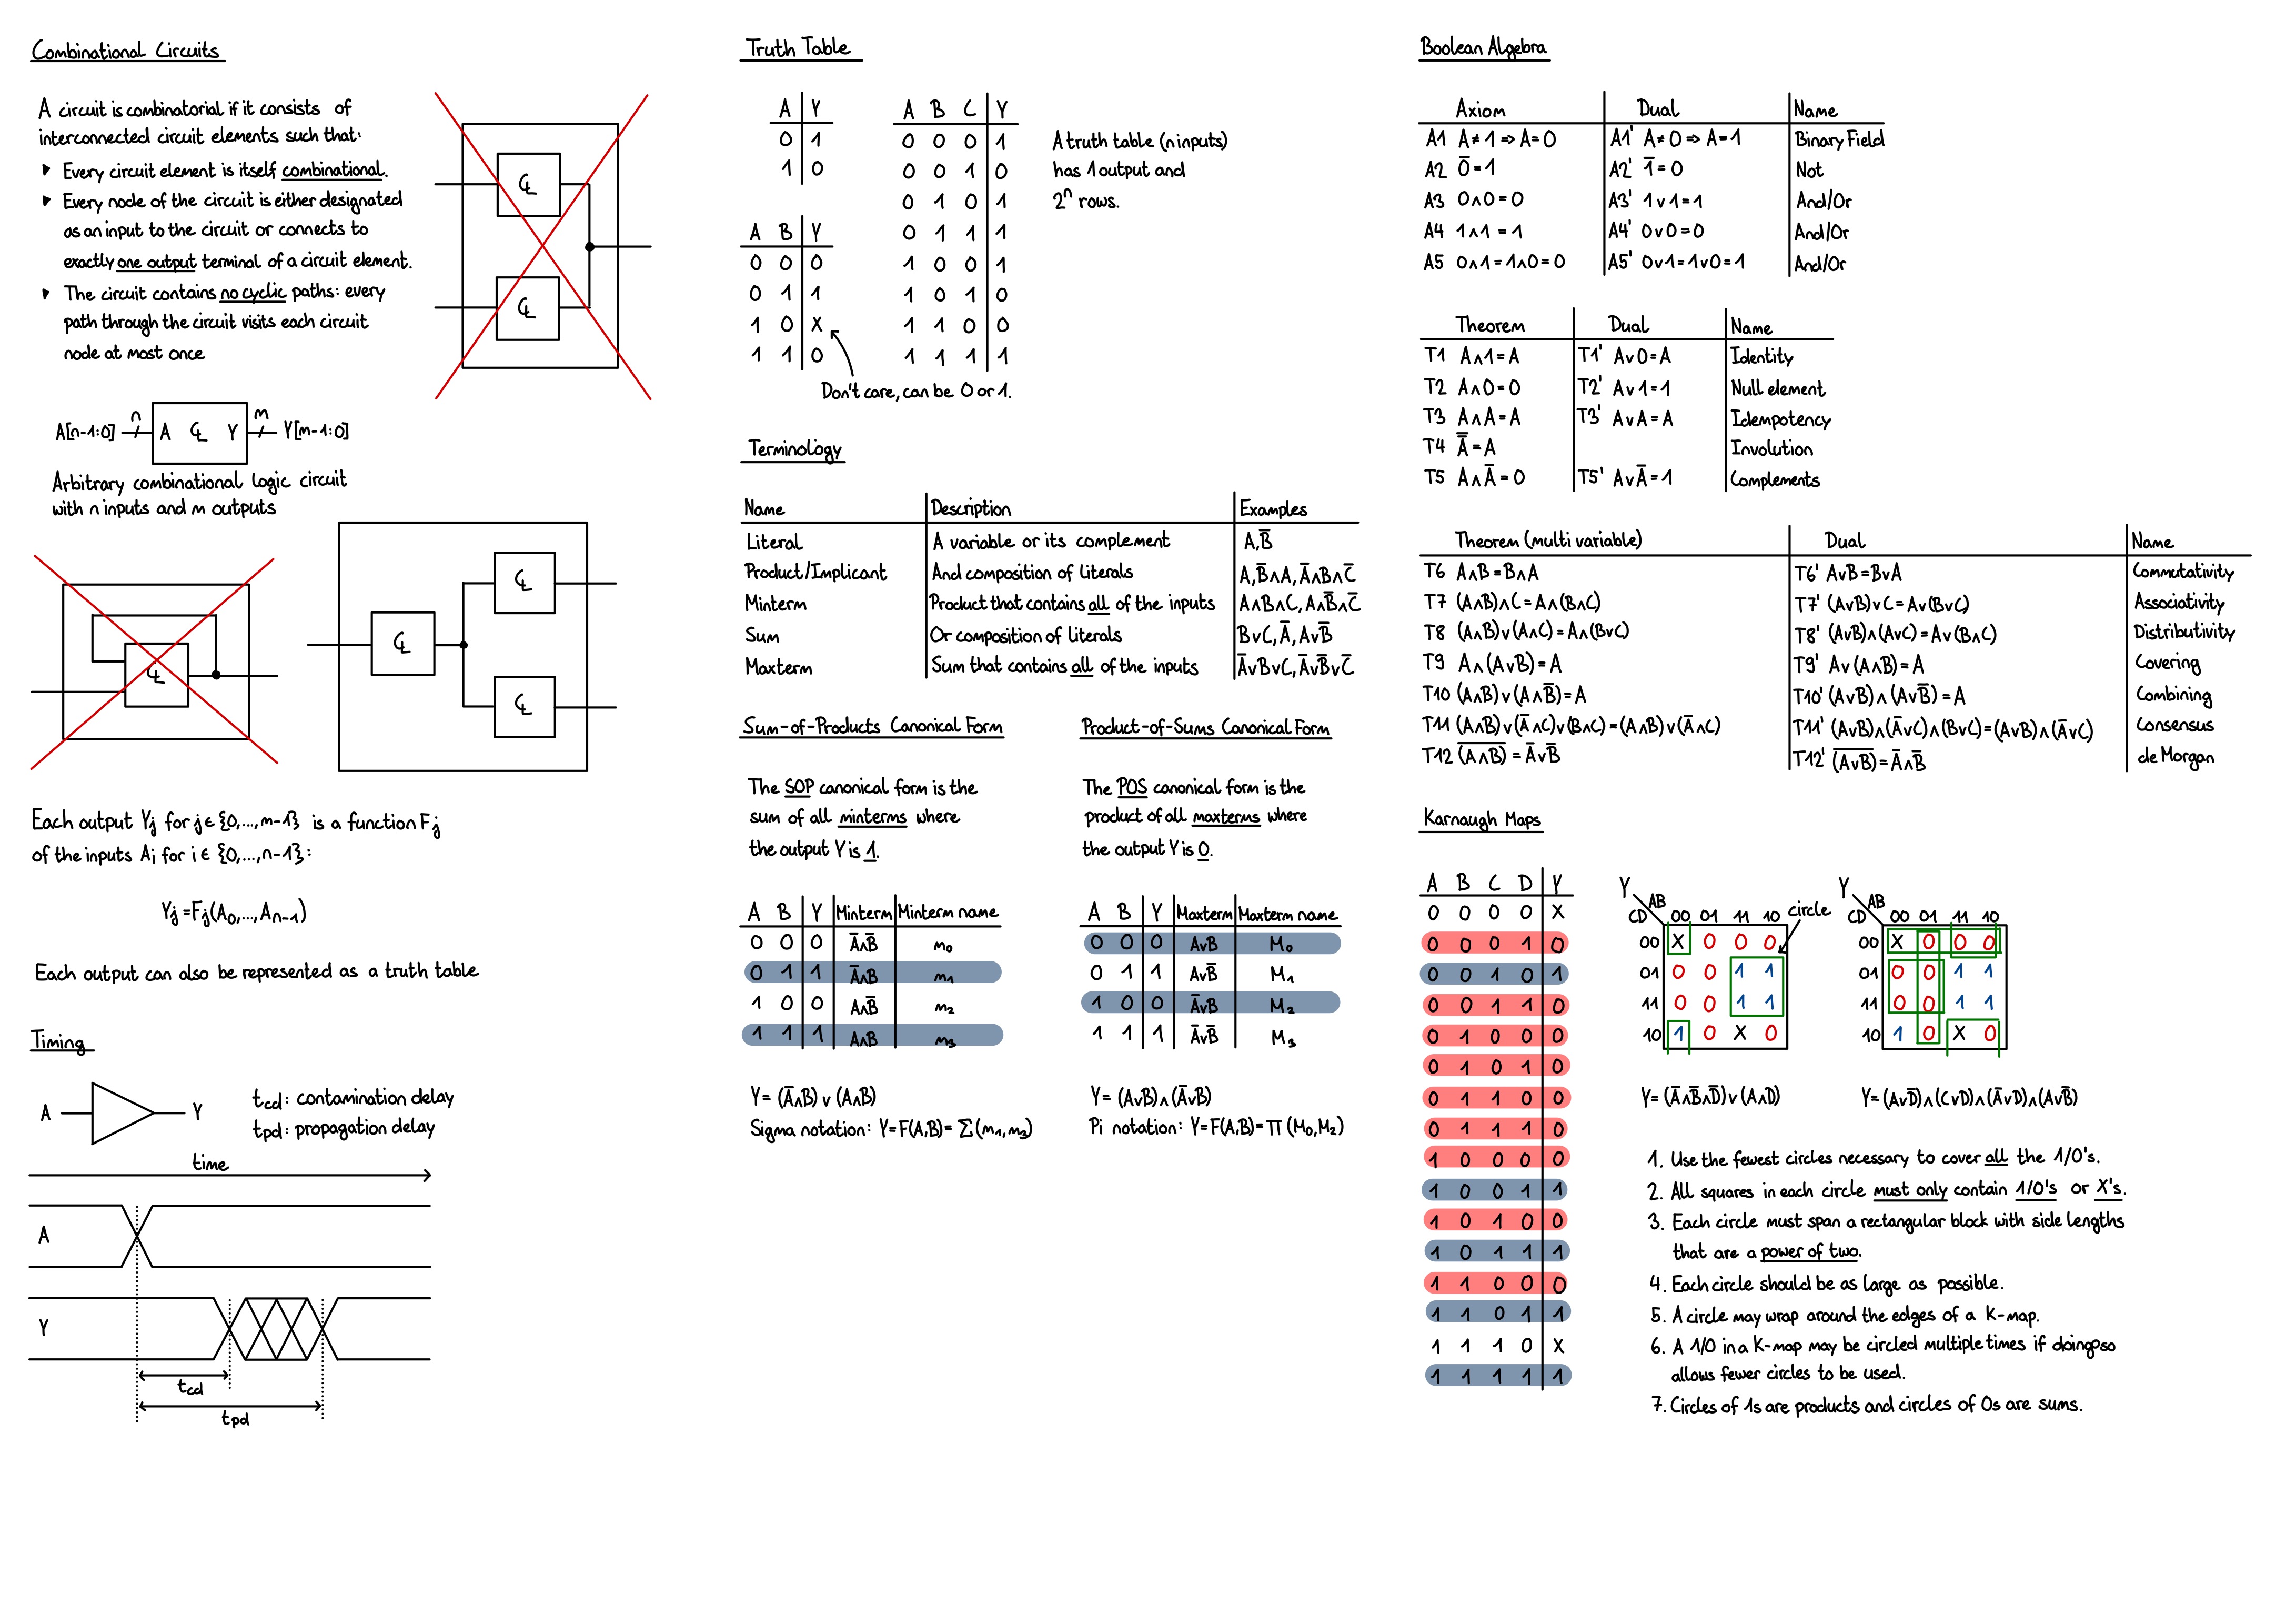 Combinational Circuits
A circuit is combinatorial if it consists of
interconnected circuit elements such that:
▸ Every circuit element is itself combinational.
▸ Every node of the circuit is either designated
as an input to the circuit or connects to
exactly one output terminal of a circuit element.
▸ The circuit contains no cyclic paths: every
path through the circuit visits each circuit
node at most once
CL
CL
n m
A[n-1:0] A CL Y Y[m-1:0]
Arbitrary combinational logic circuit
with n inputs and m outputs
CL
CL
CL
CL
Each output Yj for j∈{0,...,m-1} is a function Fj
of the inputs Ai for i∈{0,...,n-1}:
Yj=Fj(A0,...,An-1)
Each output can also be represented as a truth table
Timing
A Y
tcd: contamination delay
tpd: propagation delay
time
A
Y
tcd
tpd
Truth Table
A Y
0 1
1 0
A B Y
0 0 0
0 1 1
1 0 X
1 1 0
Don't care, can be 0 or 1.
A B C Y
0 0 0 1
0 0 1 0
0 1 0 1
0 1 1 1
1 0 0 1
1 0 1 0
1 1 0 0
1 1 1 1
A truth table (n inputs)
has 1 output and
2ⁿ rows.
Terminology
Name Description Examples
Literal A variable or its complement A, B̅
Product/Implicant And composition of literals A, B̅∧A, A̅∧B∧C̅
Minterm Product that contains all of the inputs A∧B∧C, A∧B̅∧C̅
Sum Or composition of literals B∨C, A̅, A∨B̅
Maxterm Sum that contains all of the inputs A̅∨B∨C, A̅∨B̅∨C̅
Sum-of-Products Canonical Form
The SOP canonical form is the
sum of all minterms where
the output Y is 1.
A B Y Minterm Minterm name
0 0 0 A̅∧B̅ m0
0 1 1 A̅∧B m1
1 0 0 A∧B̅ m2
1 1 1 A∧B m3
Y= (A̅∧B) ∨ (A∧B)
Sigma notation: Y=F(A,B)= Σ(m1,m3)
Product-of-Sums Canonical Form
The POS canonical form is the
product of all maxterms where
the output Y is 0.
A B Y Maxterm Maxterm name
0 0 0 A∨B M0
0 1 1 A∨B̅ M1
1 0 0 A̅∨B M2
1 1 1 A̅∨B̅ M3
Y= (A∨B)∧(A̅∨B)
Pi notation: Y=F(A,B)=Π(M0,M2)
Boolean Algebra
Axiom Dual Name
A1 A≠1⇒A=0 A1' A≠0⇒A=1 Binary Field
A2 0̅=1 A2' 1̅=0 Not
A3 0∧0=0 A3' 1∨1=1 And/Or
A4 1∧1=1 A4' 0∨0=0 And/Or
A5 0∧1=1∧0=0 A5' 0∨1=1∨0=1 And/Or
Theorem Dual Name
T1 A∧1=A T1' A∨0=A Identity
T2 A∧0=0 T2' A∨1=1 Null element
T3 A∧A=A T3' A∨A=A Idempotency
T4 A̿=A Involution
T5 A∧A̅=0 T5' A∨A̅=1 Complements
Theorem (multi variable) Dual Name
T6 A∧B=B∧A T6' A∨B=B∨A Commutativity
T7 (A∧B)∧C=A∧(B∧C) T7' (A∨B)∨C=A∨(B∨C) Associativity
T8 (A∧B)∨(A∧C)=A∧(B∨C) T8' (A∨B)∧(A∨C)=A∨(B∧C) Distributivity
T9 A∧(A∨B)=A T9' A∨(A∧B)=A Covering
T10 (A∧B)∨(A∧B̅)=A T10' (A∨B)∧(A∨B̅)=A Combining
T11 (A∧B)∨(A̅∧C)∨(B∧C)=(A∧B)∨(A̅∧C) T11' (A∨B)∧(A̅∨C)∧(B∨C)=(A∨B)∧(A̅∨C) Consensus
T12 (A̅∧̅B̅)=A̅∨B̅ T12' (A̅∨̅B̅)=A̅∧B̅ de Morgan
Karnaugh Maps
A B C D Y
0 0 0 0 X
0 0 0 1 0
0 0 1 0 1
0 0 1 1 0
0 1 0 0 0
0 1 0 1 0
0 1 1 0 0
0 1 1 1 0
1 0 0 0 0
1 0 0 1 1
1 0 1 0 0
1 0 1 1 1
1 1 0 0 0
1 1 0 1 1
1 1 1 0 X
1 1 1 1 1
Y AB
CD 00 01 11 10 circle
00 X 0 0 0
01 0 0 1 1
11 0 0 1 1
10 1 0 X 0
Y= (A̅∧B̅∧D̅)∨(A∧D)
Y AB
CD 00 01 11 10
00 X 0 0 0
01 0 0 1 1
11 0 0 1 1
10 1 0 X 0
Y=(A∨D̅)∧(C∨D)∧(A̅∨D)∧(A∨B̅)
1. Use the fewest circles necessary to cover all the 1/0's.
2. All squares in each circle must only contain 1/0's or X's.
3. Each circle must span a rectangular block with side lengths
that are a power of two.
4. Each circle should be as large as possible.
5. A circle may wrap around the edges of a K-map.
6. A 1/0 in a K-map may be circled multiple times if doingpso
allows fewer circles to be used.
7. Circles of 1s are products and circles of 0s are sums.